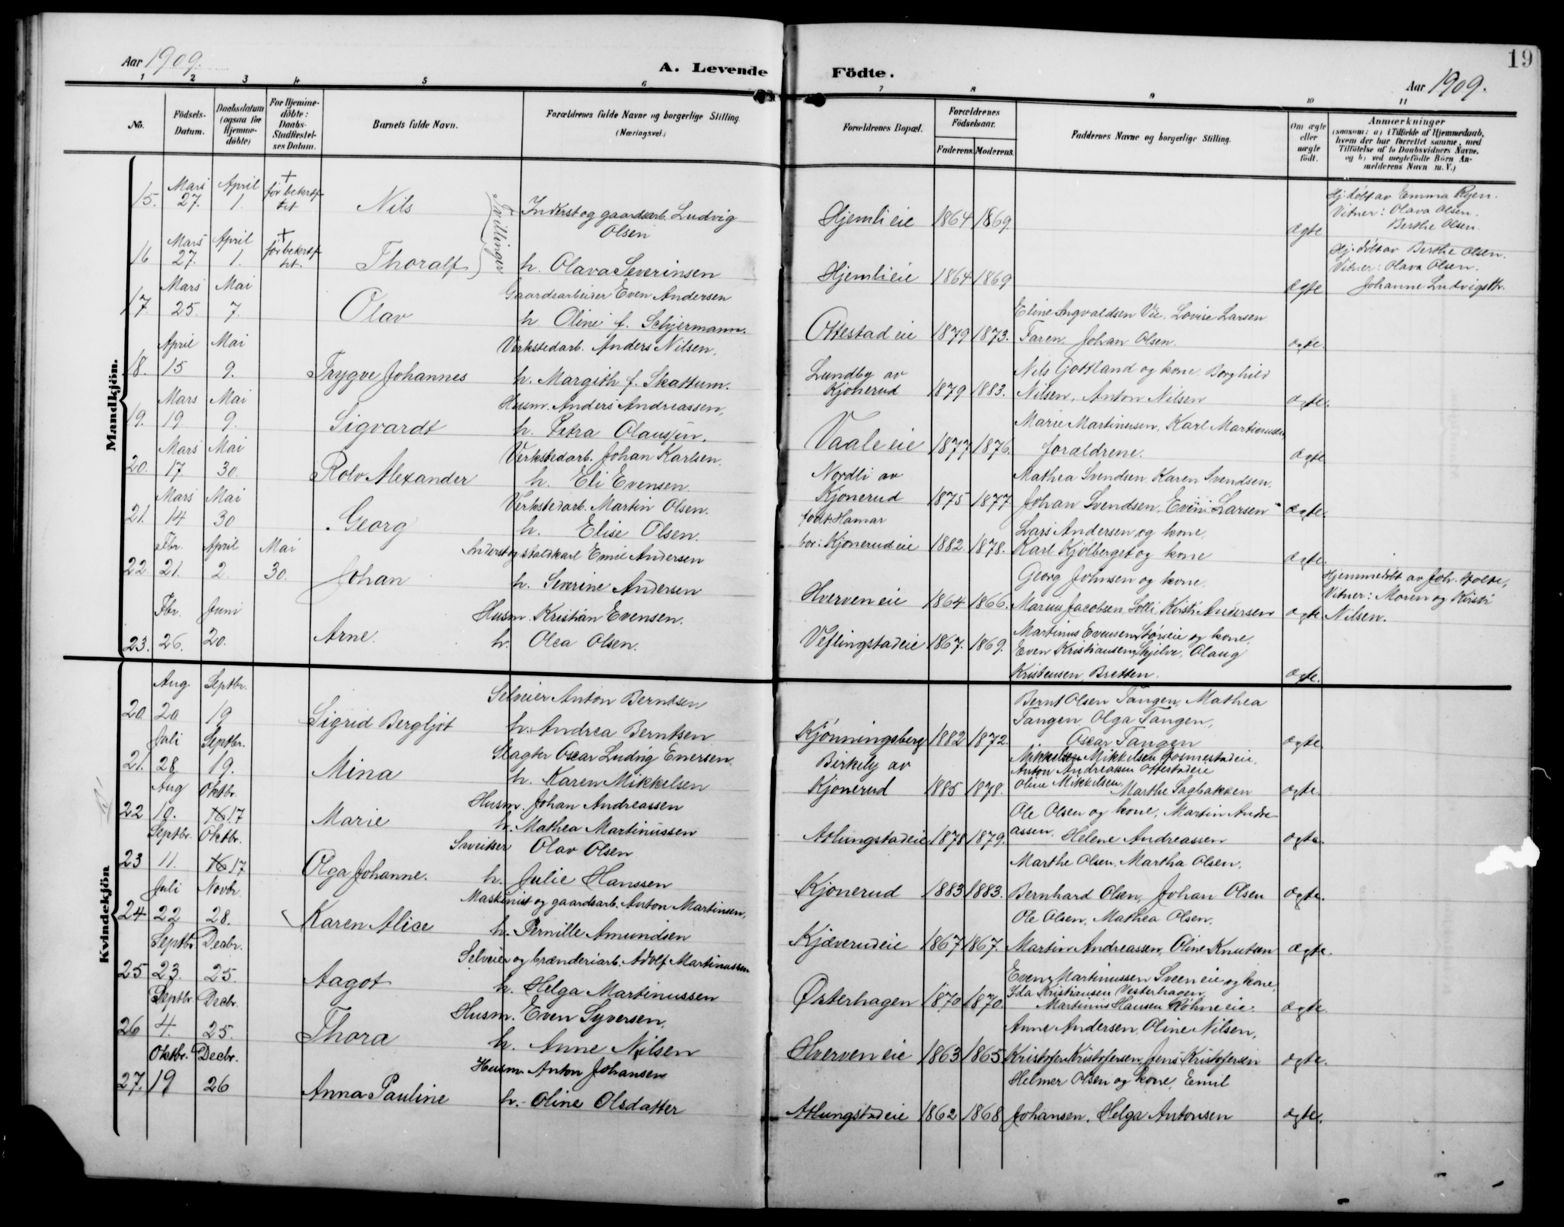 19
Aar 1909.
A. Levende Fødte.
Aar 1909.
1 2 3 4 5 6 7 8 9 10 11
No.
Fødsels-
Datum.
Daabsdatum
(ogsaa for
Hjemme-
døbte)
For Hjemme-
døbte:
Daabs-
Stadfæstel-
ses Datum.
Barnets fulde Navn.
Forældrenes fulde Navne og borgerlige Stilling
(Næringsvei.)
Forældrenes Bopæl.
Forældrenes
Fødselsaar.
Faderens. Moderens.
Faddernes Navne og borgerlige Stilling.
Om ægte
eller
uægte
født.
Anmærkninger
(saasom: a) i Tilfælde af Hjemmedaab,
hvem der har forrettet samme, med
Tilføielse af to Daabsvidners Navne,
og b) ved uægtefødte Børn An-
melderens Navn m. V.)
Mandkjøn.
15. Mars 27. April 1. + før bekræftet Nils
Tvillinger
Inderst og gaardsarb. Ludvig
Olsen
Hjemli eie 1864 1869 ægte
Hj.døbt av Emma
Vitner: Olava Olsen.
Berthe Olsen.
16 Mars 27. April 1. + før bekræftet Thoralf
h. Olava Severinsen
Hjemli eie 1864 1869 ægte
Hj. døbt av Berthe Olsen.
Vitner: Olava Olsen.
Johanne Ludvigsdtr.
17. Mars 25. Mai 7. Olav
Gaardsarbeider Even Andersen
h Oline f. Schjermann.
Ottestad eie 1879 1873.
Eline Ingvaldsen Vie. Lovise Larsen
Faren. Johan Olsen. ægte
18. April 15 Mai 9. Trygve Johannes
Verkstedarb. Anders Nilsen.
h. Margith f. Skattum.
Lundby av
Kjonerud 1879 1883.
Nils Gottland og kone Borghild
Nilsen, Anton Nilsen ægte.
19. Mars 19 Mai 9. Sigvardt
Husm. Anders Andreassen.
h. Petra Olausen.
Vaale eie 1877 1876.
Marie Martinusen, Karl Martinussen
forældrene. ægte
20. Mars 17 Mai 30. Rolv Alexander
Verkstedarb. Johan Karlsen.
h. Eli Evensen.
Nordli av
Kjonerud 1875 1877
Mathea Svendsen Karen Svendsen.
Johan Svendsen. Even Larsen ægte.
21. Mars 14 Mai 30 Georg
Verkstedarb. Martin Olsen.
h. Elise Olsen.
født: Hamar
bor: Kjonerud eie 1882 1878.
Lars Andersen og kone
Karl Kjølberget og kone ægte.
22 Fbr. 21. April 2. Mai 30. Johan
Inderst og staldkarl Emil Andersen
h. Severine Andersen
Hverven eie 1864 1866.
Georg Johnsen og kone.
Marius Jacobsen Lølli, Kirsti Andersen ægte
Hjemmedøbt av Joh.
Vitner: Maren og Kirsti
Nilsen.
23. Fbr. 26. Juni 20. Arne.
Husm. Kristian Evensen.
h. Olea Olsen.
Veflingstad eie 1867. 1869.
Martinus Evensen og kone,
Even Kristiansen Olaug
Kristensen Bretten. ægte.
Kvindekjøn
20. Aug 20 Septbr. 19 Sigrid Bergljot
Selveier Anton Berntsen
h. Andrea Berntsen
Kjønningsberg 1882 1872
Bernt Olsen Tangen, Mathea
Tangen Olga Tangen,
Oscar Tangen ægte
21. Juli 28 Septbr. 19. Mina
Slagter Oscar Ludvig Enersen.
h. Karen Mikkelsen
Birkely av
Kjonerud 1885 1878.
Mikkel Mikkelsen
Anton Andreassen Ottestadeie
Oline Mikkelsen Marthe Sagbakken ægte.
22 Aug 19. Oktbr. 16 17 Marie
Husm. Johan Andreassen
h. Mathea Martinussen
Atlungstad eie 1878 1879.
Ole Olsen og kone, Martin Andre
assen. Helene Andreassen ægte.
23 Septbr. 11. Oktbr. 16 17 Olga Johanne.
Sveitser Olav Olsen
h. Julie Hanssen
Kjonerud 1883 1883.
Marthe Olsen, Martha Olsen,
Bernhard Olsen, Johan Olsen ægte.
24 Juli 22 Novbr. 28. Karen Alice
Maskinist og gaardsarb. Anton Martinsen.
h. Pernille Amundsen
Kjæverud eie 1867 1867.
Ole Olsen, Mathea Olsen.
Martin Andreassen, Oline Knutsen ægte.
25 Septbr 23. Decbr. 25. Aagot
Selveier og brænderiarb. Adolf Martinussen
h. Helga Martinussen
Østerhagen 1870 1870
Even Martinussen Sveen eie og kone,
Ida Kristiansen Vesterhagen
Martinus Hansen Bøhn eie. ægte.
26 Septbr 4. Decbr. 25 Thora
Husm. Even Syversen,
h. Anne Nilsen
Hverven eie 1863 1865
Anne Andersen, Oline Nilsen,
Kristofer Kristofersen, Jens Kristofersen ægte.
27. Oktbr. 19 Decbr. 26 Anna Pauline
Husm. Anton Johansen
h. Oline Olsdatter
Atlungstad eie 1862 1868
Helmer Olsen og kone, Emil
Johansen. Helga Antonsen ægte.